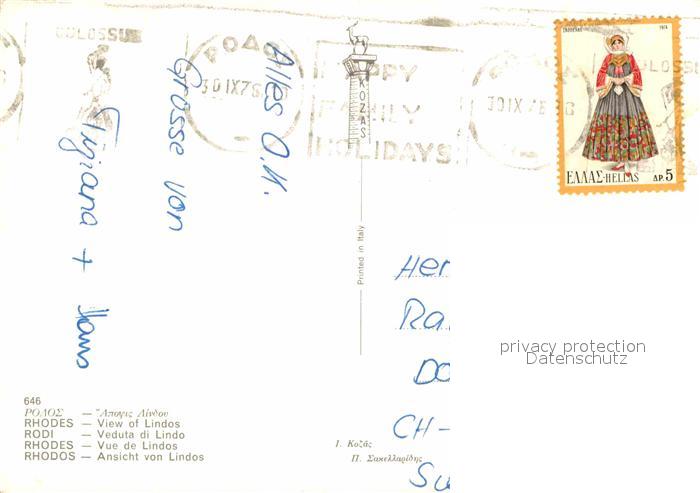 COLOSSUS
ΡΟΔΟΣ
30 IX 76
HAPPY
FAMILY
HOLIDAYS
KOZAS
30 IX 76
COLOSSUS
1974
ΕΛΛΑΣ-HELLAS ΔΡ. 5
Alles O.K.
Grosse von
Tiziana + Hans
Printed in Italy
Her
Ra
Do
CH-
Su
privacy protection
Datenschutz
646
ΡΟΔΟΣ — Ἄποψις Λίνδου
RHODES — View of Lindos
RODI — Veduta di Lindo
RHODES — Vue de Lindos
RHODOS — Ansicht von Lindos
Ι. Κοζᾶς
Π. Σακελλαρίδης